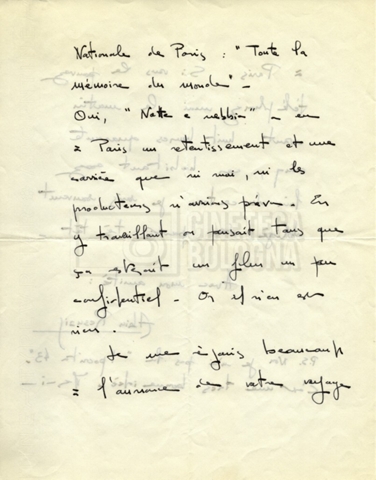 Nationale de Paris : "Toute la
mémoire du monde" -
Oui, "Notte e nebbia" - eu
à Paris un retentissement et une
carrière que ni moi, ni les
producteurs n'avions prévu. En
y travaillant on pensait tous que
ça serait un film un peu
confidentiel - Or il n'en est
rien.
Je me réjouis beaucoup
à l'annonce de votre voyage
CINETECA
BOLOGNA